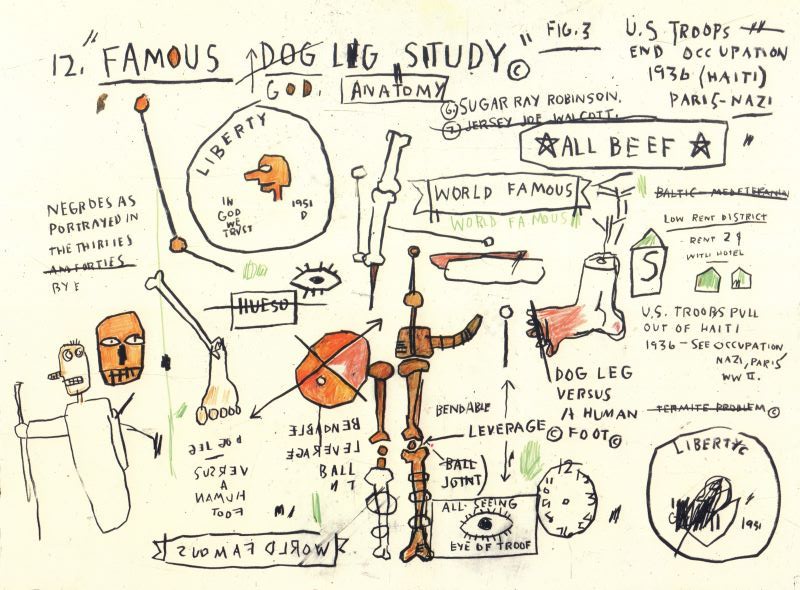 12. "FAMOUS DOG LEG STUDY" ©
GOD.
ANATOMY
FIG. 3
U.S. TROOPS
END OCCUPATION
1936 (HAITI)
PARIS-NAZI
⑥ SUGAR RAY ROBINSON.
⑦ JERSEY JOE WALCOTT.
ALL BEEF
LIBERTY
IN
GOD
WE
TRUST
1951
D
WORLD FAMOUS
WORLD FAMOUS
BALTIC-MEDETERANIN
LOW RENT DISTRICT
RENT 2$
WITH HOTEL
S
NEGROES AS
PORTRAYED IN
THE THIRTIES
AND FORTIES
BYE
HUESO
U.S. TROOPS PULL
OUT OF HAITI
1936-SEE OCCUPATION
NAZI, PARIS
WW II.
DOG LEG
VERSUS
A HUMAN
© FOOT ©
TERMITE PROBLEM ©
BENDABLE
LEVERAGE
BALL
JOINT
BENDABLE
LEVERAGE
BALL
DOG LEG
VERSUS
A
HUMAN
FOOT
ALL SEEING
EYE OF TROOF
12
LIBERTY ©
1951
WORLD FAMOUS